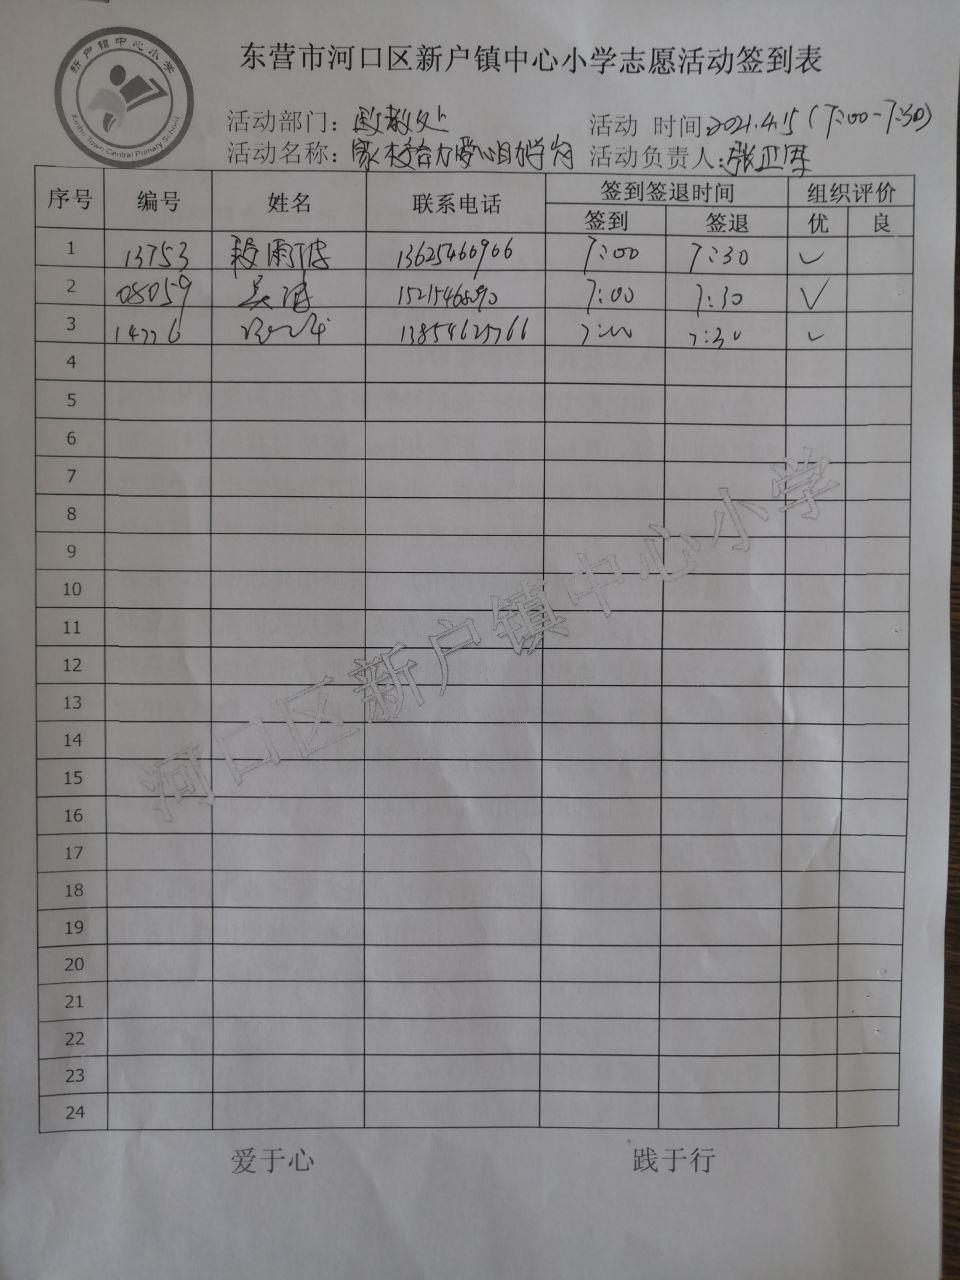 新户镇中心小学
Xinhu Town Central Primary School
东营市河口区新户镇中心小学志愿活动签到表
活动部门: 政教处 活动 时间: 2021.4.15 (7:00-7:30)
活动名称: 家校合力爱心助学 活动负责人:
序号 编号 姓名 联系电话 签到签退时间 组织评价
签到 签退 优 良
1 13753 段雨 13625466966 7:00 7:30 ✓
2 08059 吴 7:00 7:30 ✓
3 13854625766 7:00 7:30 ✓
4
5
6
7
8
9
10
11
12
13
14
15
16
17
18
19
20
21
22
23
24
河口区新户镇中心小学
爱于心 践于行